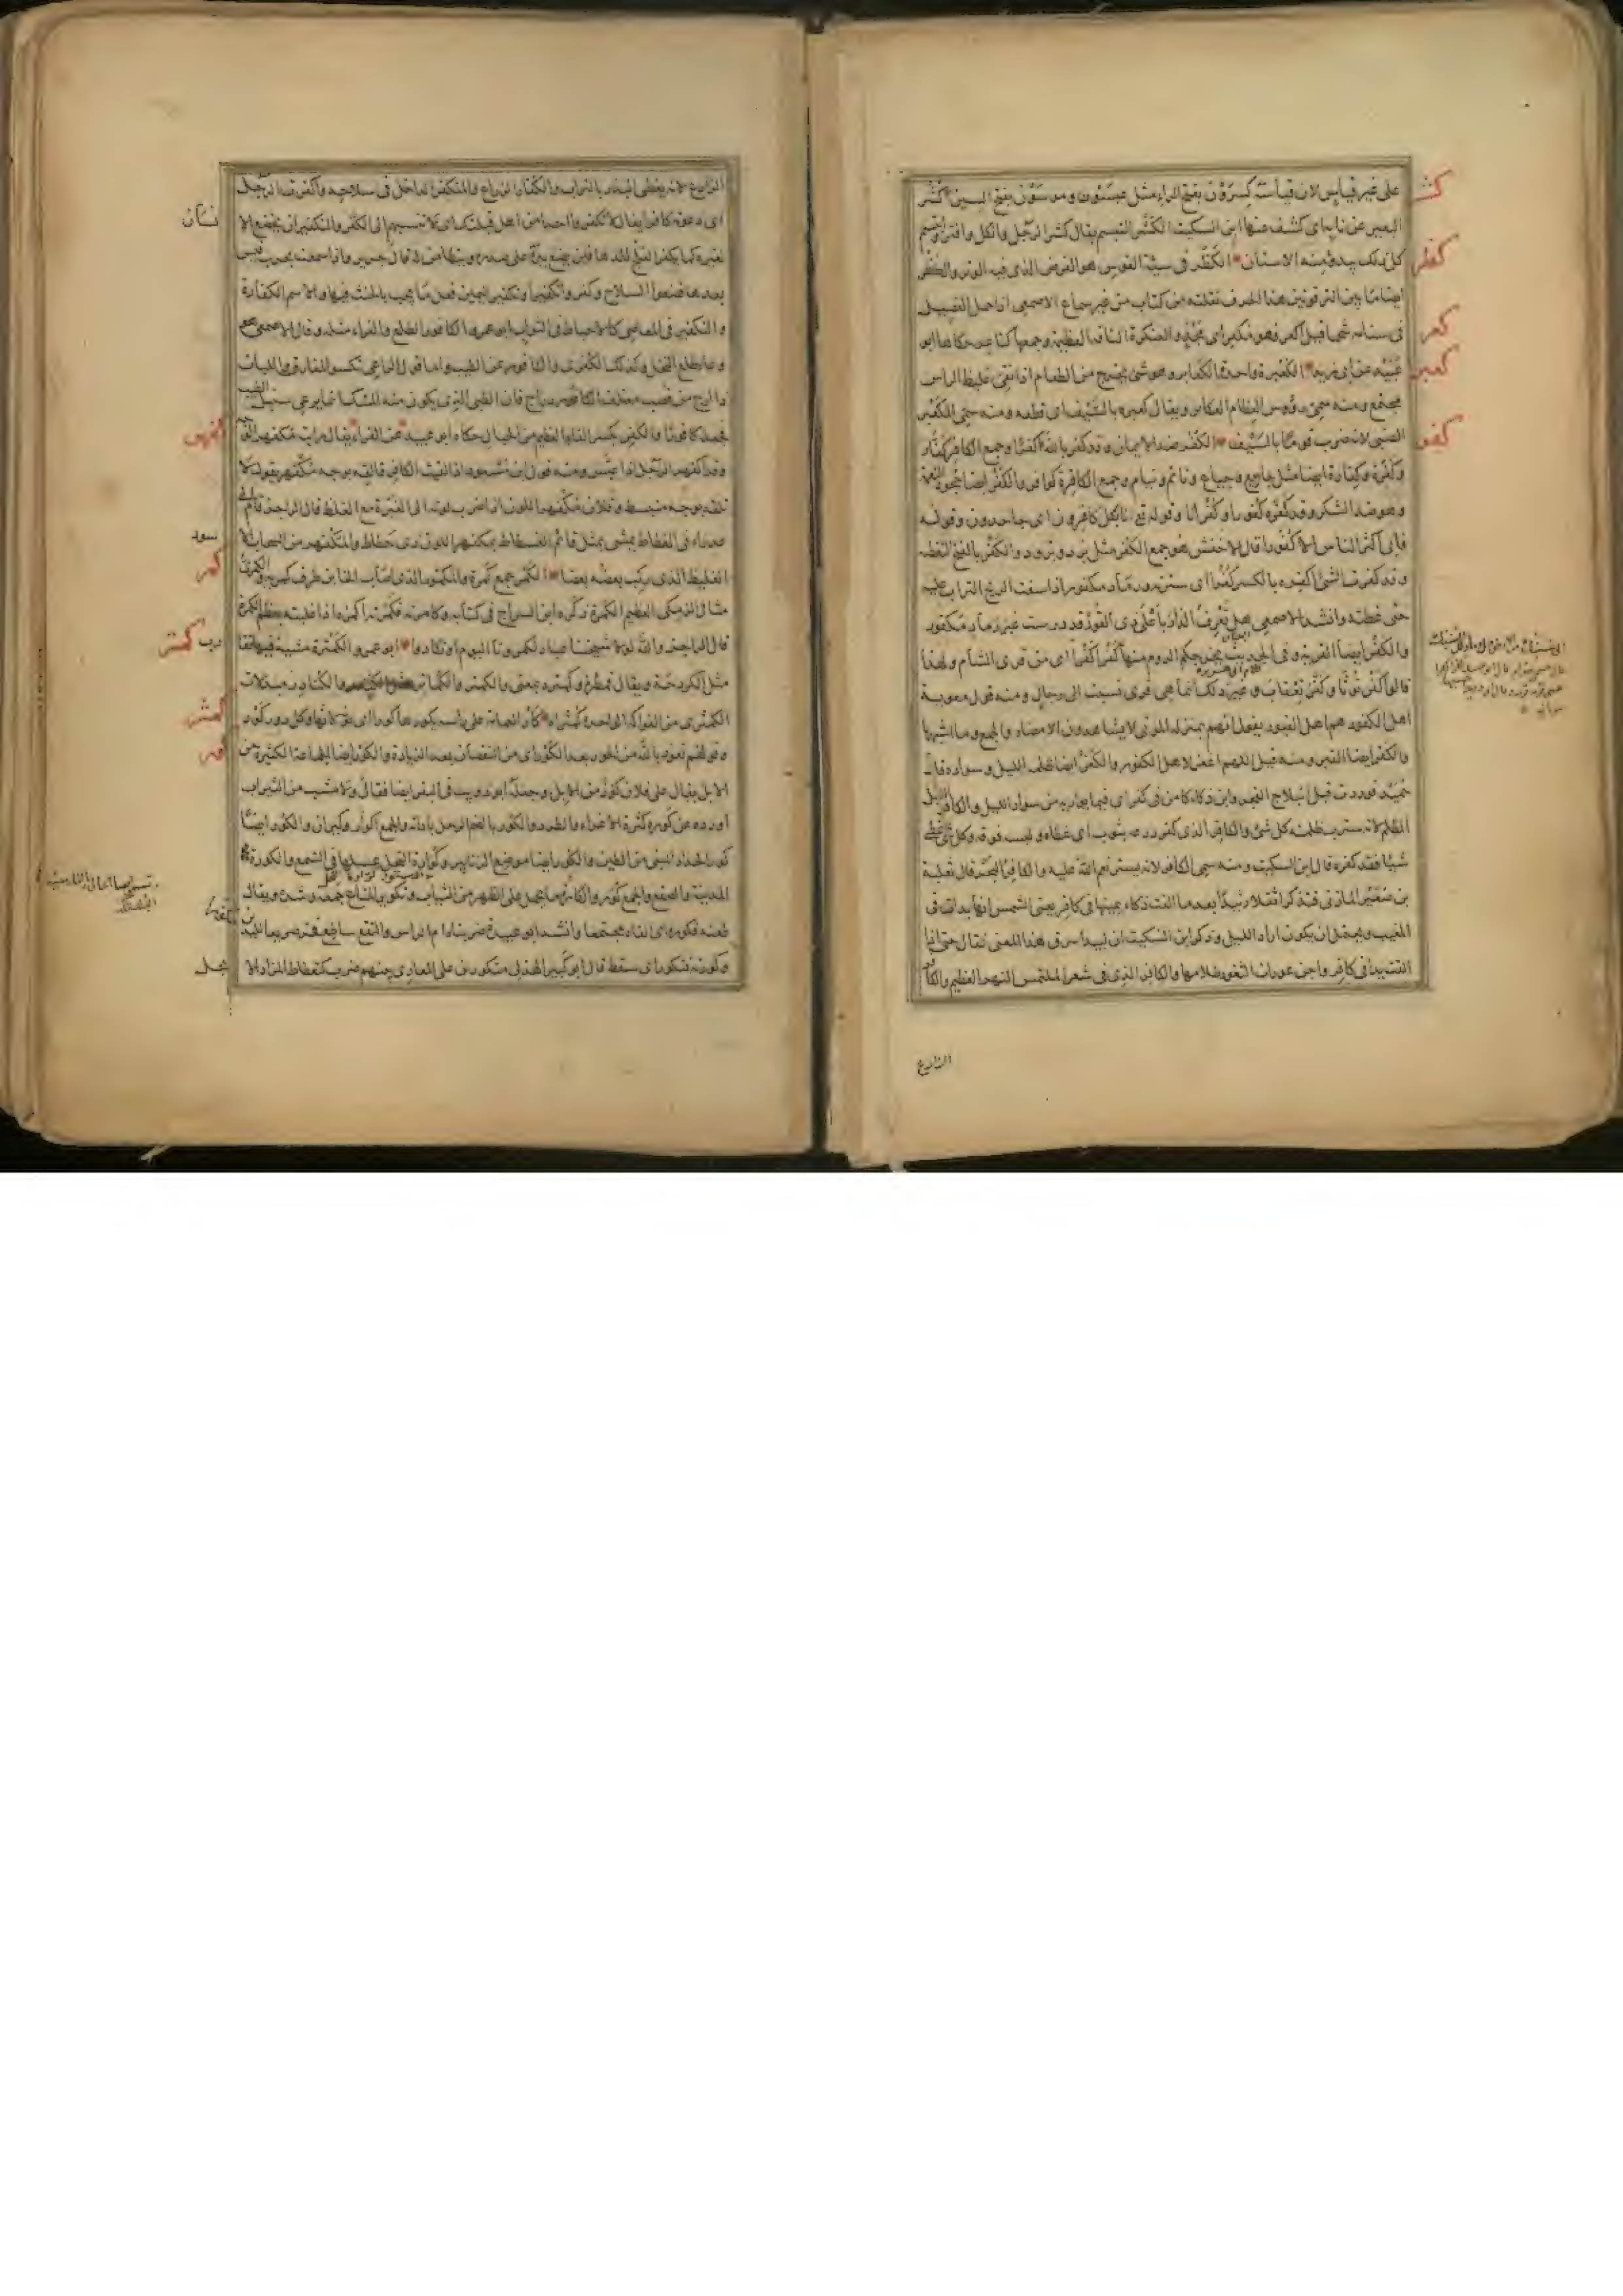 على غير قياس لان قياسه كسرون بفتح الراء مثل عيسون وموسون بفتح السين كشر
البعير عن نابه اى كشف عنها ابن السكيت الكشر التبسم يقال كشر الرجل وانكل وافتر وابتسم
كل ذلك يبدو منه الاسنان الكظر فى سية القوس هو الفرض الذى فيه الوتر والكظر
ايضا ما بين الترقوتين هذا الحرف نقلته من كتاب من غير سماع الاصمعى اذا حمل الفصيل
فى سنامه شحما قيل اكعر فهو مكعر
عن الكعبرة واحدة الكعابر وهو شئ يخرج من الطعام اذا نقى غليظ الراس
مجتمع ومنه سمى رؤوس العظام الكعابر ويقال كعبره بالسيف اى قطعه ومنه سمى المكعبر
الضبى لانه ضرب قوما بالسيف الكفر ضد الايمان وقد كفر بالله كفرا وجمع الكافر كفار
وكفرة وكفار ايضا مثل جايع وجياع ونائم ونيام وجمع الكافرة كوافر والكفر ايضا جحود النعمة
وهو ضد الشكر وقد كفره كفورا وكفرانا وقوله تع انا بكل كافرون اى جاحدون وقوله
فابى اكثر الناس الا كفورا قال الاخفش هو جمع الكفر مثل برد وبرود والكفر بالفتح التغطية
وقد كفرت الشئ اكفره بالكسر كفرا اى سترته ورماد مكفور اذا سفت الريح التراب عليه
حتى غطته وانشد الاصمعى هل تعرف الدار باعلى ذى القور قد درست غير رماد مكفور
والكفر ايضا القرية وفى الحديث يخرجكم الروم منها كفرا كفرا اى من قرى الشام ولهذا
قالوا كفر توثا وكفر تعقاب وغير ذلك انما هى قرى نسبت الى رجال ومنه قول معوية
اهل الكفور هم اهل القبور يقول انهم بمنزلة الموتى لا يشاهدون الامصار والجمع وما اشبهها
والكفر ايضا القبر ومنه قيل اللهم اغفر لاهل الكفور والكفر ايضا ظلمة الليل وسواده قال
حميد فوردت قبل انبلاج الفجر وابن ذكاء كامن فى كفر اى فيما يواريه من سواد الليل والكافر الليل
المظلم لانه ستر بظلمته كل شئ والكافر الذى كفر درعه بثوب اى غطاه ولبسه فوقه وكل شئ غطى
شيئا فقد كفره قال ابن السكيت ومنه سمى الكافر لانه يستر نعم الله عليه والكافر البحر قال ثعلبة
بن صعير المازنى فتذكرا ثقلا رثيدا بعد ما القت ذكاء يمينها فى كافر يعنى الشمس انها بدات فى
المغيب ويحتمل ان يكون اراد الليل وذكر ابن السكيت ان لبيدا سرق هذا المعنى فقال حتى اذا
القت يدا فى كافر واجن عورات الثغور ظلامها والكافر الذى فى شعر المتلمس النهر العظيم والكافر
الزارع
كشر
كظر
كعر
كعبر
كفر
الزارع لانه يغطى البذر بالتراب والكفار الزراع والمتكفر الداخل فى سلاحه واكفرت الرجل
اى دعوته كافرا يقال لا تكفر احدا من اهل قبلتك اى لا تنسبهم الى الكفر والتكفير ان يخضع الانسان
لغيره كما يكفر العلج للدهاقين يضع يده على صدره ويتطامن له قال جرير واذا سمعت بحرب قيس
بعدها فضعوا السلاح وكفروا تكفيرا وتكفير اليمين فعل ما يجب بالحنث فيها والاسم الكفارة
والتكفير فى المعاصى كالاحباط فى الثواب ابو عمرو الكافور الطلع والفراء مثله وقال الاصمعى هو
وعاء طلع النخل وكذلك الكفرى والكافور من الطيب واما قول الراعى تكسو المفارق واللبات
ذا ارج من قصب معتلف الكافور دراج فان الظبى الذى يكون منه المسك انما يرعى سنبل الطيب
فجعله كافورا والكفر بكسر الفاء العظيم من الجبال حكاه ابو عبيد عن الفراء يقال رايت مكفهر الوجه
وقد اكفهر الرجل اذا عبس ومنه قول ابن مسعود اذا لقيت الكافر فالقه بوجه مكفهر يقول لا
تلقه بوجه منبسط وفلان مكفهر اللون اذا ضرب لونه الى الغبرة مع الغلظ قال الراجز قام الى
عذراء فى الغطاط يمشى بمثل قائم الفسطاط بمكفهر اللون ذى حطاط والمكفهر من السحاب الاسود
الغليظ الذى ركب بعضه بعضا الكمر جمع كمرة والمكمور الذى اصاب الخاتن طرف كمرته والكمرى
مثال الزمكى العظيم الكمرة ذكره ابن السراج فى كتابه وكامرته فكمرته اكمره اذا غلبته بعظم الكمرة
قال الراجز والله لولا شيخنا عباد لكمرونا اليوم او لكادوا ابو عمرو الكمترة مشية فيها تقارب
مثل الكردحة ويقال قمطره وكمتره بمعنى والكمتر والكماتر والكنادر مبدلات
الكمثرى من الفواكه الواحدة كمثراة كار العمامة على راسه يكورها كورا اى لاثها وكل دور كور
وقولهم نعوذ بالله من الحور بعد الكور اى من النقصان بعد الزيادة والكور ايضا الجماعة الكثيرة من
الابل يقال على فلان كور من الابل وجعله ابو ذويب فى البقر ايضا فقال ولا مشب من الثيران
افرده عن كوره كثرة الاغراء والطرد والكور بالضم الرحل باداته والجمع اكوار وكيران والكور ايضا
كور الحداد المبنى من الطين والكور ايضا موضع الزنابير وكوارة النحل عسلها فى الشمع والكورة
المدينة والصقع والجمع كور والكارة ما يحمل على الظهر من الثياب وتكوير المتاع جمعه وشده ويقال
طعنه فكوره اى القاه مجتمعا وانشد ابو عبيدة ضربناه ام الراس والنقع ساطع فخر صريعا لليدين
وكورته فتكور اى سقط قال ابو كبير الهذلى متكورين على المعارى بينهم ضرب كتعطاط المزاد الاثجل
كمر
كمتر
كمثر